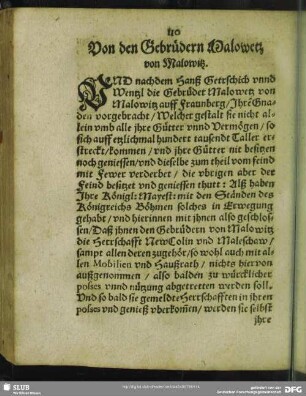 110
Von den Gebrüdern Malowetz
von Malowitz.
VND nachdem Hanß Gettschich vnnd
Wentzl die Gebrüder Malowetz von
Malowitz auff Fraunberg / Ihre Gna-
den vorgebracht / Welcher gestalt sie nicht al-
lein vmb alle jhre Gütter vnnd Vermögen / so
sich auff etzlichmal hundert tausendt Taller er-
streckt / kommen / vnd jhre Gütter nit besitzen
noch geniessen / vnd dieselbe zum theil vom feind
mit Fewer verderbet / die vbrigen aber der
Feind besitzet vnd geniessen thutt : Alß haben
Ihre Königl: Mayest: mit den Ständen des
Königreichs Böhmen solches in Erwegung
gehabt / vnd hierinnen mit jhnen also geschlos-
sen / Daß jhnen den Gebrüdern von Malowitz
die Herrschafft NewColin vnd Maleschaw /
sampt allen deren zugehör / so wohl auch mit al-
len Mobilien vnd Haußrath / nichts hiervon
außgenommen / also balden zu würcklicher
posses vnnd nützung abgetretten werden soll.
Vnd so bald sie gemeldte Herrschafften in jhren
posses vnd genieß vberkommen / werden sie selbst
jhre
SLUB